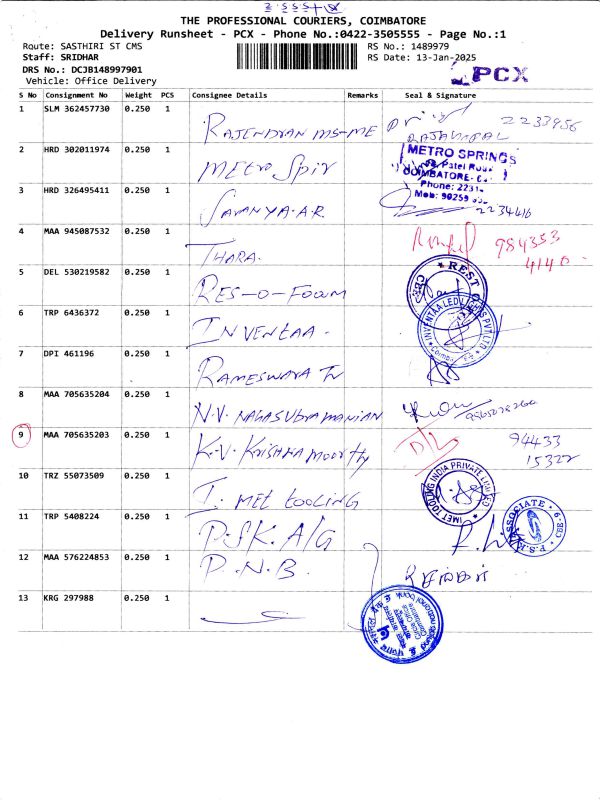 THE PROFESSIONAL COURIERS, COIMBATORE
Delivery Runsheet - PCX - Phone No.:0422-3505555 - Page No.:1
Route: SASTHIRI ST CMS RS No.: 1489979
Staff: SRIDHAR RS Date: 13-Jan-2025
DRS No.: DCJB148997901
Vehicle: Office Delivery
PCX
S No Consignment No Weight PCS Consignee Details Remarks Seal & Signature
1 SLM 362457730 0.250 1 RAJENDRAN MS-ME 2233956
2 HRD 302011974 0.250 1 Metro Spir METRO SPRINGS
Patel Road
COIMBATORE-
Phone: 2231
Mob: 90259
3 HRD 326495411 0.250 1 SARANYA.A.R 2234416
4 MAA 945087532 0.250 1 THARA. 984353
4140
5 DEL 530219582 0.250 1 RES-O-Foam REST CBE
6 TRP 6436372 0.250 1 INVENTAA. INVENTAA LED PVT LTD
7 DPI 461196 0.250 1 RAMESWARA Tv
8 MAA 705635204 0.250 1 N.V. NAGASUBRAMANIAN
9 MAA 705635203 0.250 1 K.V. Krishnamoorthy D/L 94433
15322
10 TRZ 55073509 0.250 1 I. MET tooLING IMET TOOLING INDIA PRIVATE LIMITED
11 TRP 5408224 0.250 1 P.S.K. A/G P.S.K. ASSOCIATE CBE-9
12 MAA 576224853 0.250 1 P.N.B.
13 KRG 297988 0.250 1 punjab national bank
Circle Office
Coimbatore